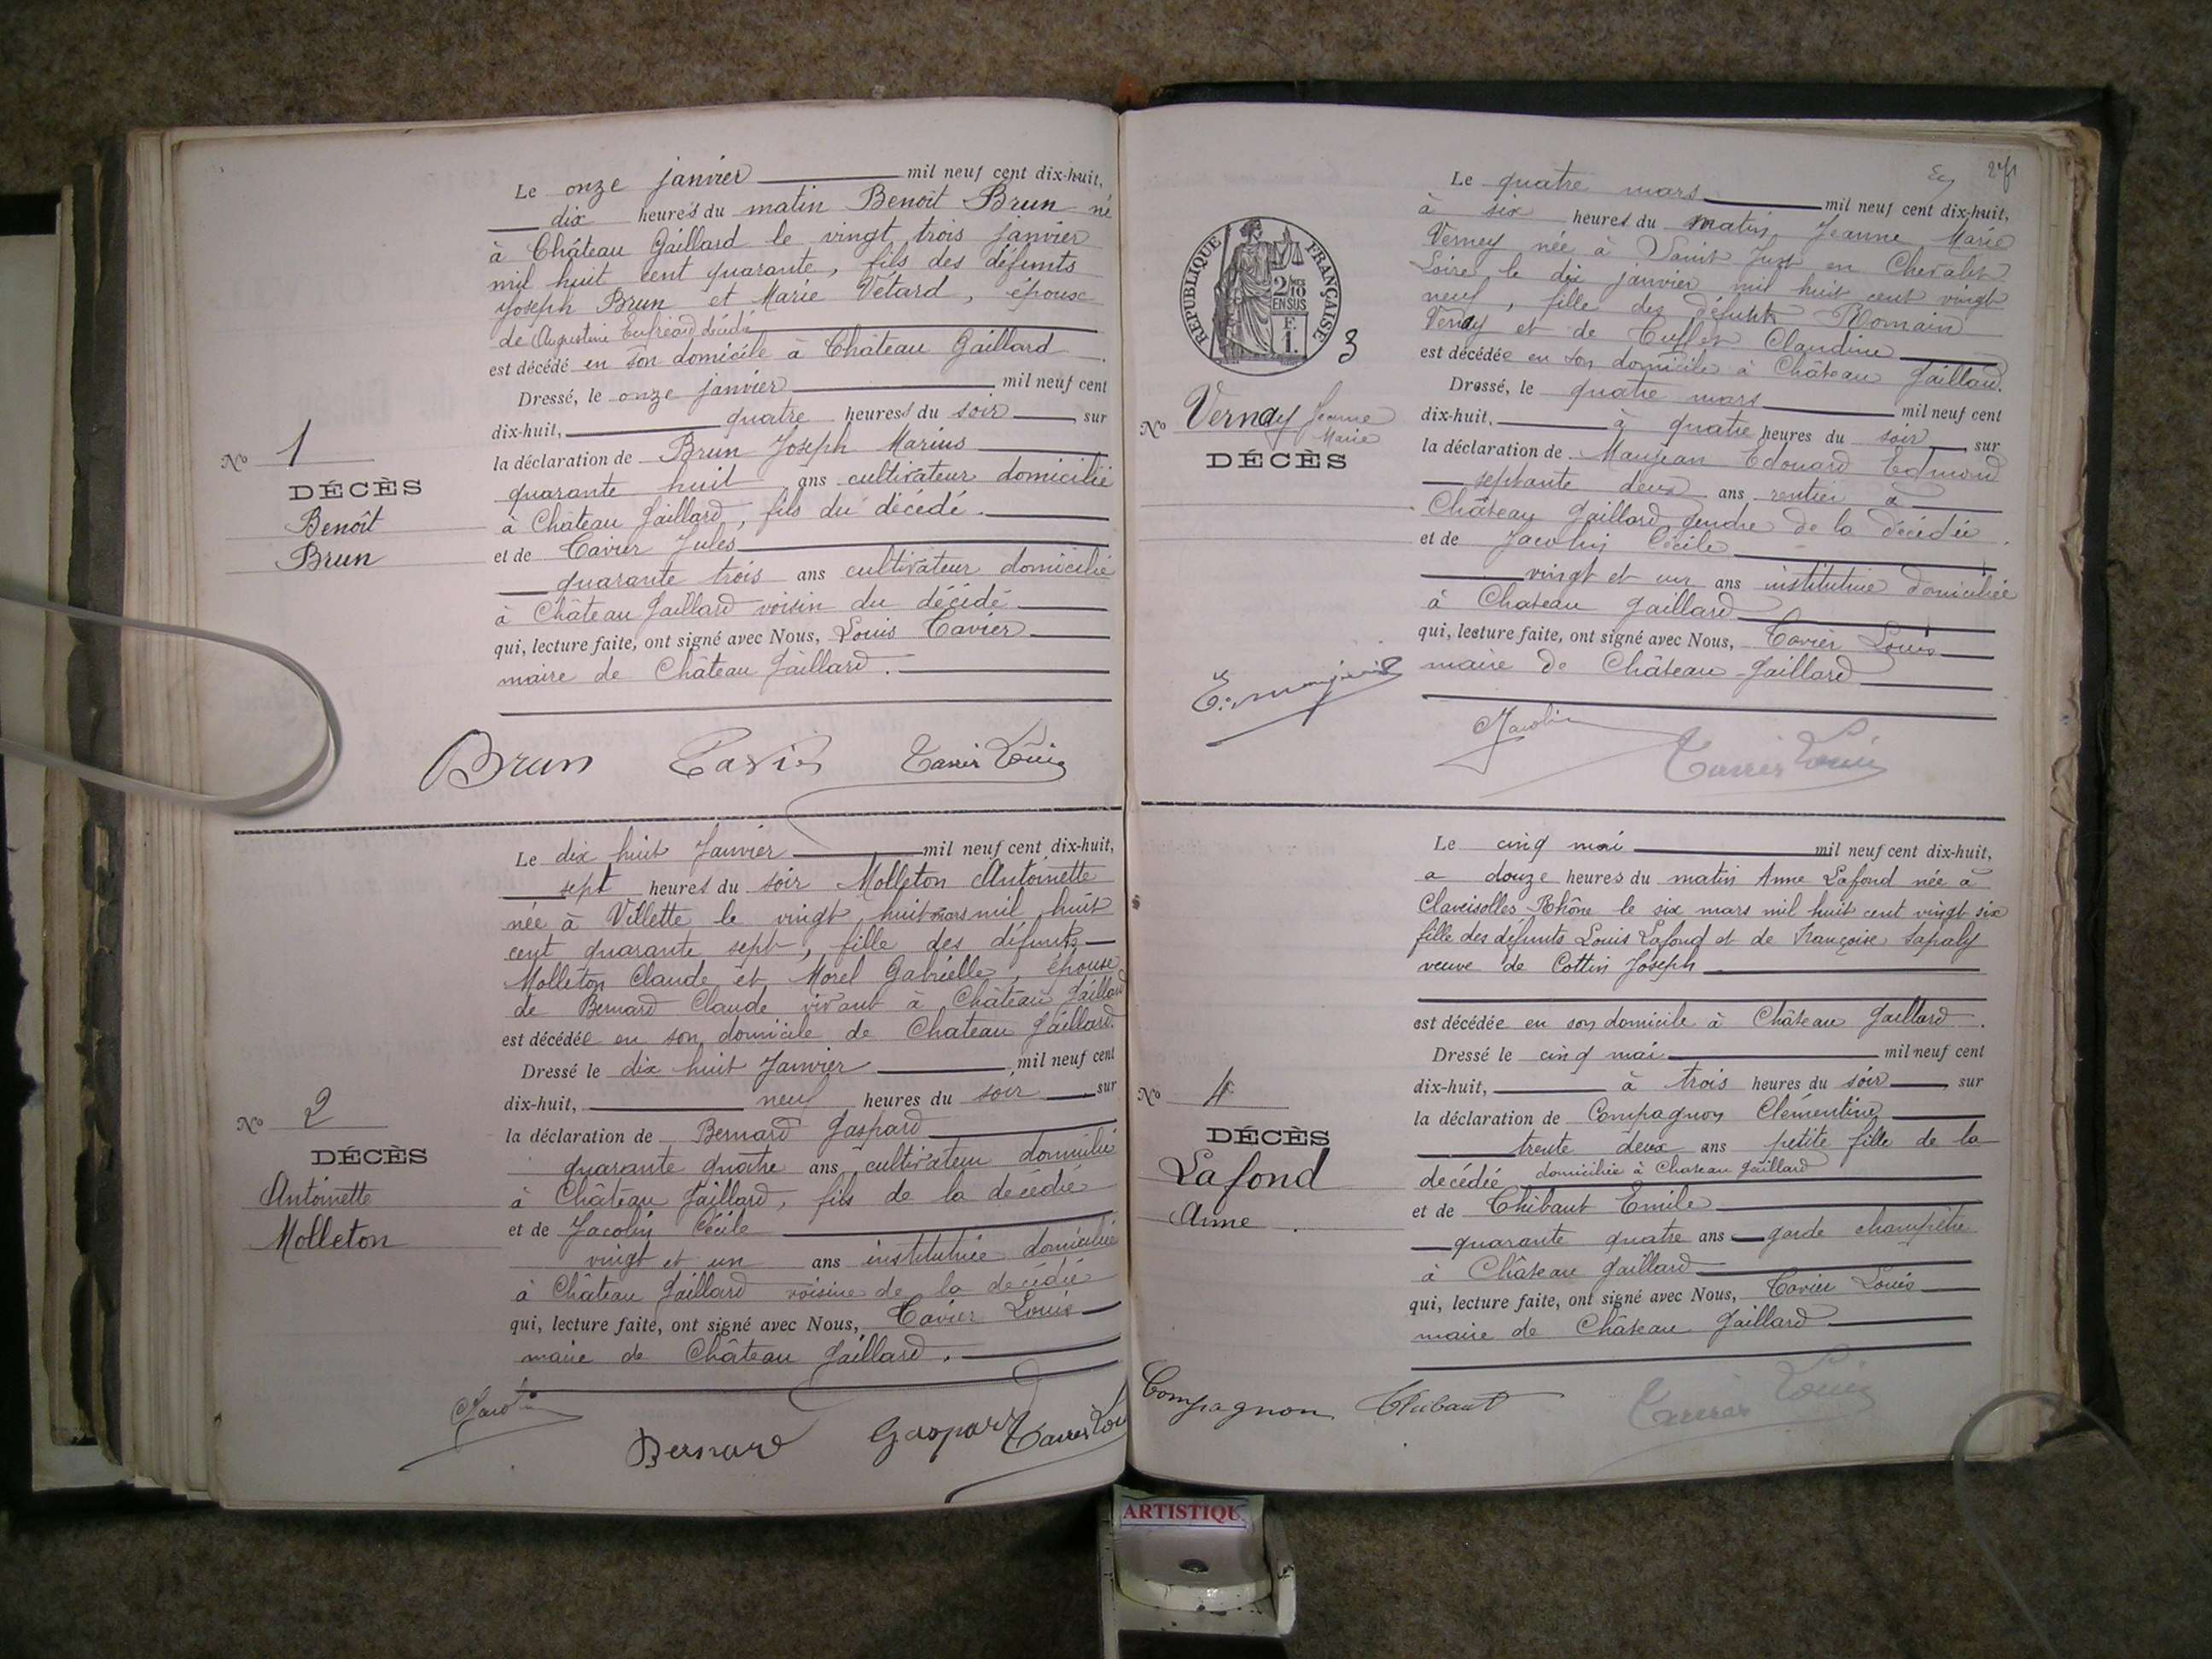 Le onze janvier mil neuf cent dix-huit,
dix heures du matin Benoît Brun né
à Château Gaillard le vingt trois janvier
mil huit cent quarante, fils des défunts
Joseph Brun et Marie Vétard, époux
de Augustine décédé
est décédé en son domicile à Château Gaillard.
Dressé, le onze janvier mil neuf cent
dix-huit, quatre heures du soir sur
la déclaration de Brun Joseph Marius
quarante huit ans cultivateur domicilié
à Château Gaillard, fils du décédé.
et de Tavier Jules
quarante trois ans cultivateur domicilié
à Château Gaillard voisin du décédé
qui, lecture faite, ont signé avec Nous, Louis Tavier
maire de Château Gaillard.
No 1
DÉCÈS
Benoît
Brun
Brun Tavier Tavier Louis
Le dix huit Janvier mil neuf cent dix-huit,
sept heures du soir Molleton Antoinette
née à Villette le vingt huit mars mil huit
cent quarante sept, fille des défunts
Molleton Claude et Morel Gabrielle, épouse
de Bernard Claude vivant à Château Gaillard
est décédée en son domicile de Chateau Gaillard.
Dressé le dix huit Janvier mil neuf cent
dix-huit, neuf heures du soir sur
la déclaration de Bernard Gaspard
quarante quatre ans cultivateur domicilié
à Château Gaillard, fils de la décédée
et de Jacolin Cécile
vingt et un ans institutrice domiciliée
à Château Gaillard voisine de la décédée
qui, lecture faite, ont signé avec Nous, Tavier Louis
maire de Château Gaillard.
No 2
DÉCÈS
Antoinette
Molleton
Jacolin Bernard Gaspard Tavier Lou
271
RÉPUBLIQUE FRANÇAISE
2/10
EN SUS
F.
1.
3
Le quatre mars mil neuf cent dix-huit,
à six heures du matin Jeanne Marie
Verney née à Saint Just en Chevalet
Loire, le dix janvier mil huit cent vingt
neuf, fille des défunts Romain
Vernay et de Claudine
est décédée en son domicile à Château Gaillard.
Dressé, le quatre mars mil neuf cent
dix-huit, à quatre heures du soir sur
la déclaration de Maujean Edouard Edmond
septante deux ans rentier à
Château Gaillard gendre de la décédée.
et de Jacolin Cécile
vingt et un ans institutrice domiciliée
à Chateau Gaillard
qui, lecture faite, ont signé avec Nous, Tavier Louis
maire de Château-Gaillard
No Vernay Jeanne
Marie
DÉCÈS
Jacolin Tavier Louis
Le cinq mai mil neuf cent dix-huit,
a douze heures du matin Anne Lafond née à
Claveisolles Rhône le six mars mil huit cent vingt six
fille des défunts Louis Lafond et de Françoise Sapaly
veuve de Cottin Joseph
est décédée en son domicile à Château Gaillard.
Dressé le cinq mai mil neuf cent
dix-huit, à trois heures du soir sur
la déclaration de Compagnon Clémentine
trente deux ans petite fille de la
décédée domiciliée à Chateau Gaillard
et de Thibaut Emile
quarante quatre ans garde champêtre
à Château Gaillard
qui, lecture faite, ont signé avec Nous, Tavier Louis
maire de Château Gaillard
No 4
DÉCÈS
Lafond
Anne.
Compagnon Thibaut Tavier Louis
ARTISTIQU